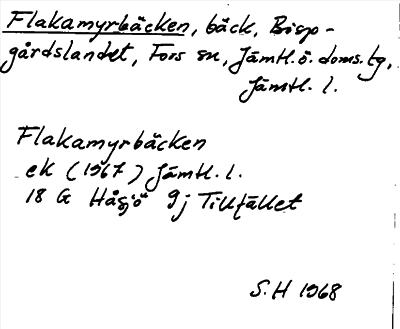 Flakamyrbäcken, bäck, Bisp-
gårdslandet, Fors sn, Jämtl.ö. doms.tg,
Jämtl. l.
Flakamyrbäcken
ek (1967) Jämtl. l.
18 G Håsjö 9j Tillfället
S.H 1968